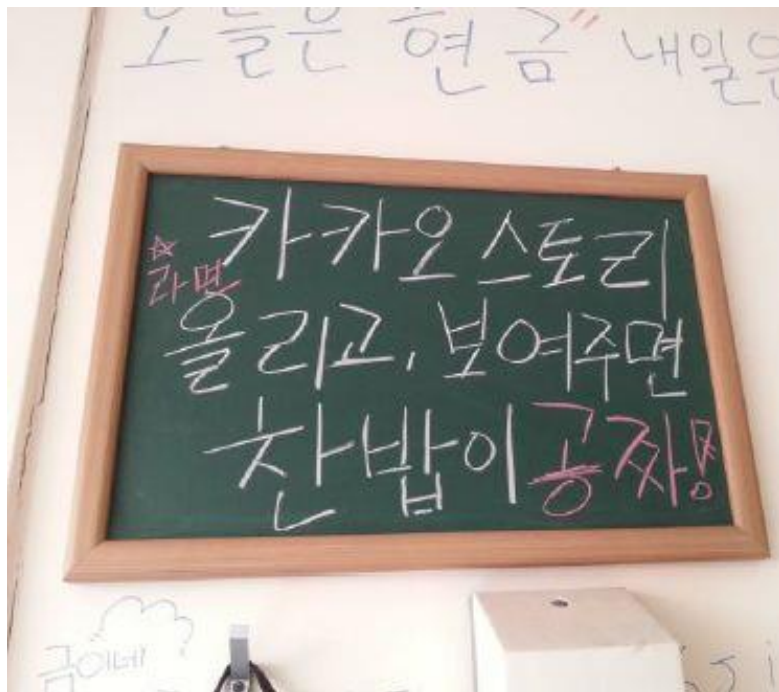 오늘은 현금" 내일은
카카오스토리
☆
라면
올리고, 보여주면
찬밥이 공짜!
금이네